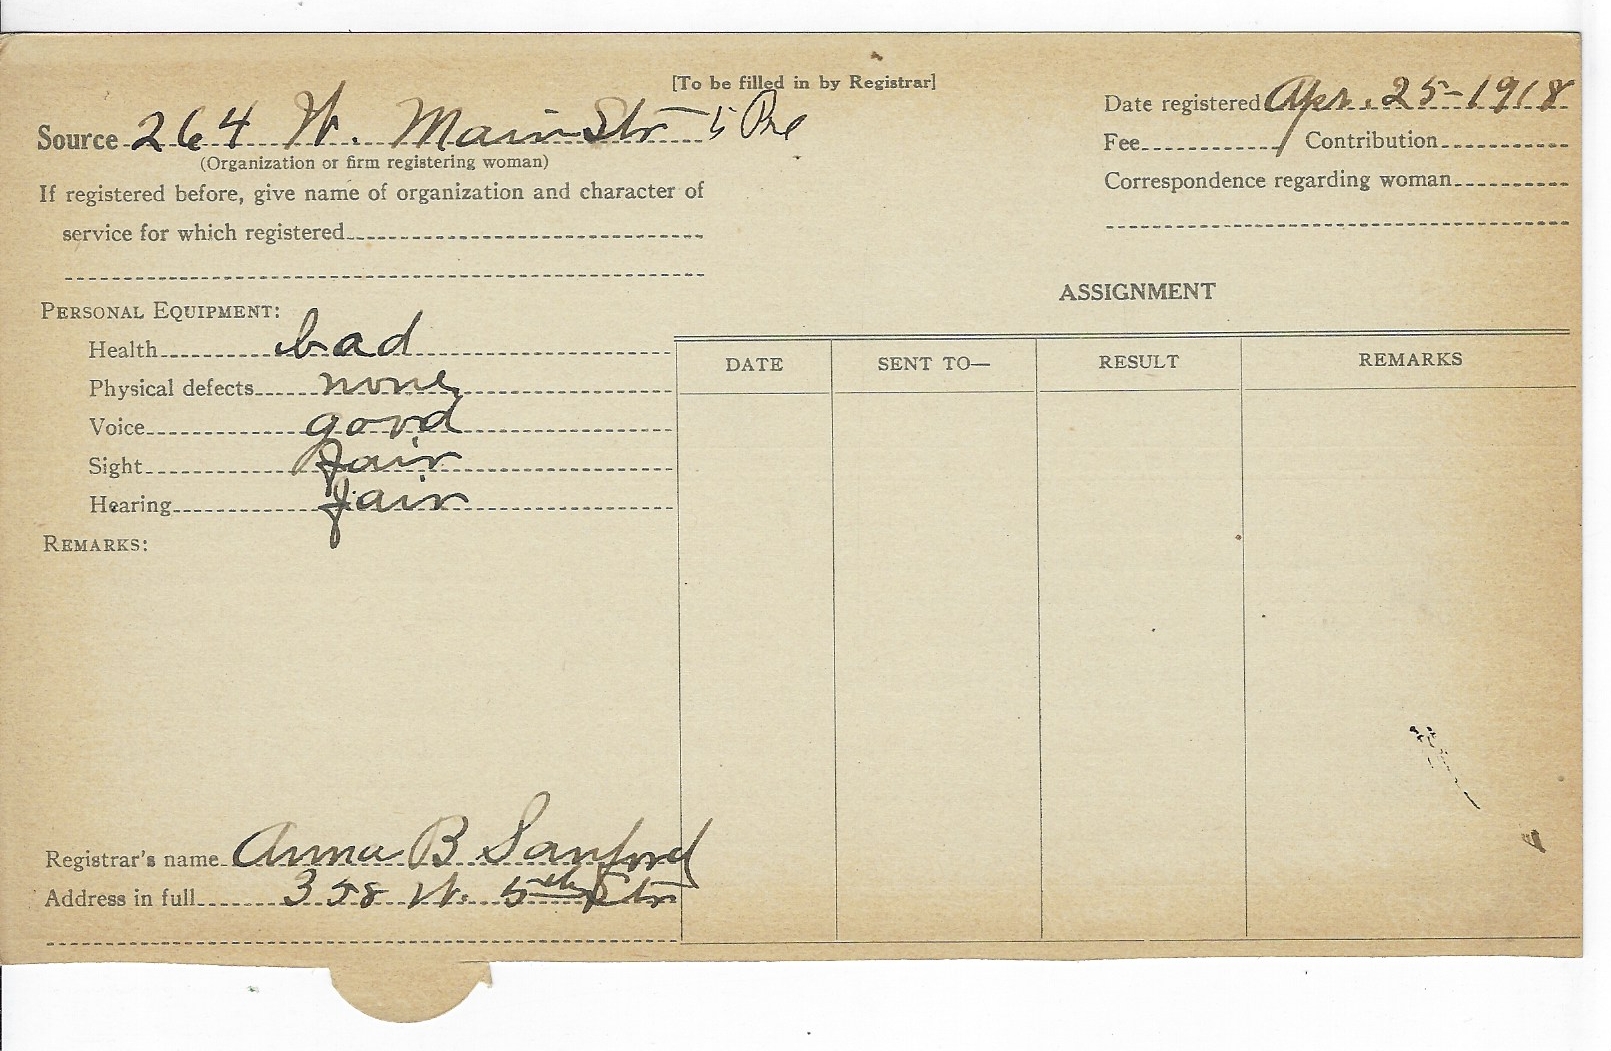 [To be filled in by Registrar]
Source 264 W. Main Str 5 Pre
(Organization or firm registering woman)
If registered before, give name of organization and character of
service for which registered
Date registered Apr. 25-1918
Fee Contribution
Correspondence regarding woman
PERSONAL EQUIPMENT:
Health bad
Physical defects none
Voice good
Sight fair
Hearing fair
REMARKS:
ASSIGNMENT
DATE SENT TO— RESULT REMARKS
Registrar's name Anna B Sanford
Address in full 358 W. 5th Str